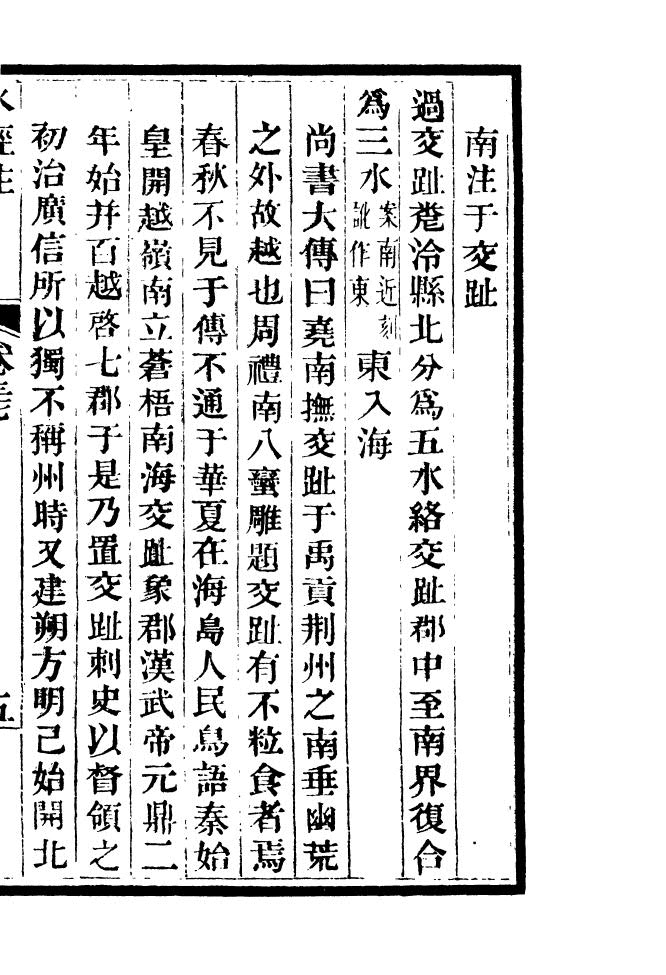 南注于交趾
過交趾麊泠縣北分爲五水絡交趾郡中至南界復合
爲三水案南近刻訛作東東入海
尚書大傳曰堯南撫交趾于禹貢荆州之南垂幽荒
之外故越也周禮南八蠻雕題交趾有不粒食者焉
春秋不見于傳不通于華夏在海島人民鳥語秦始
皇開越嶺南立蒼梧南海交趾象郡漢武帝元鼎二
年始并百越啓七郡于是乃置交趾刺史以督領之
初治廣信所以獨不稱州時又建朔方明己始開北
水經注
五